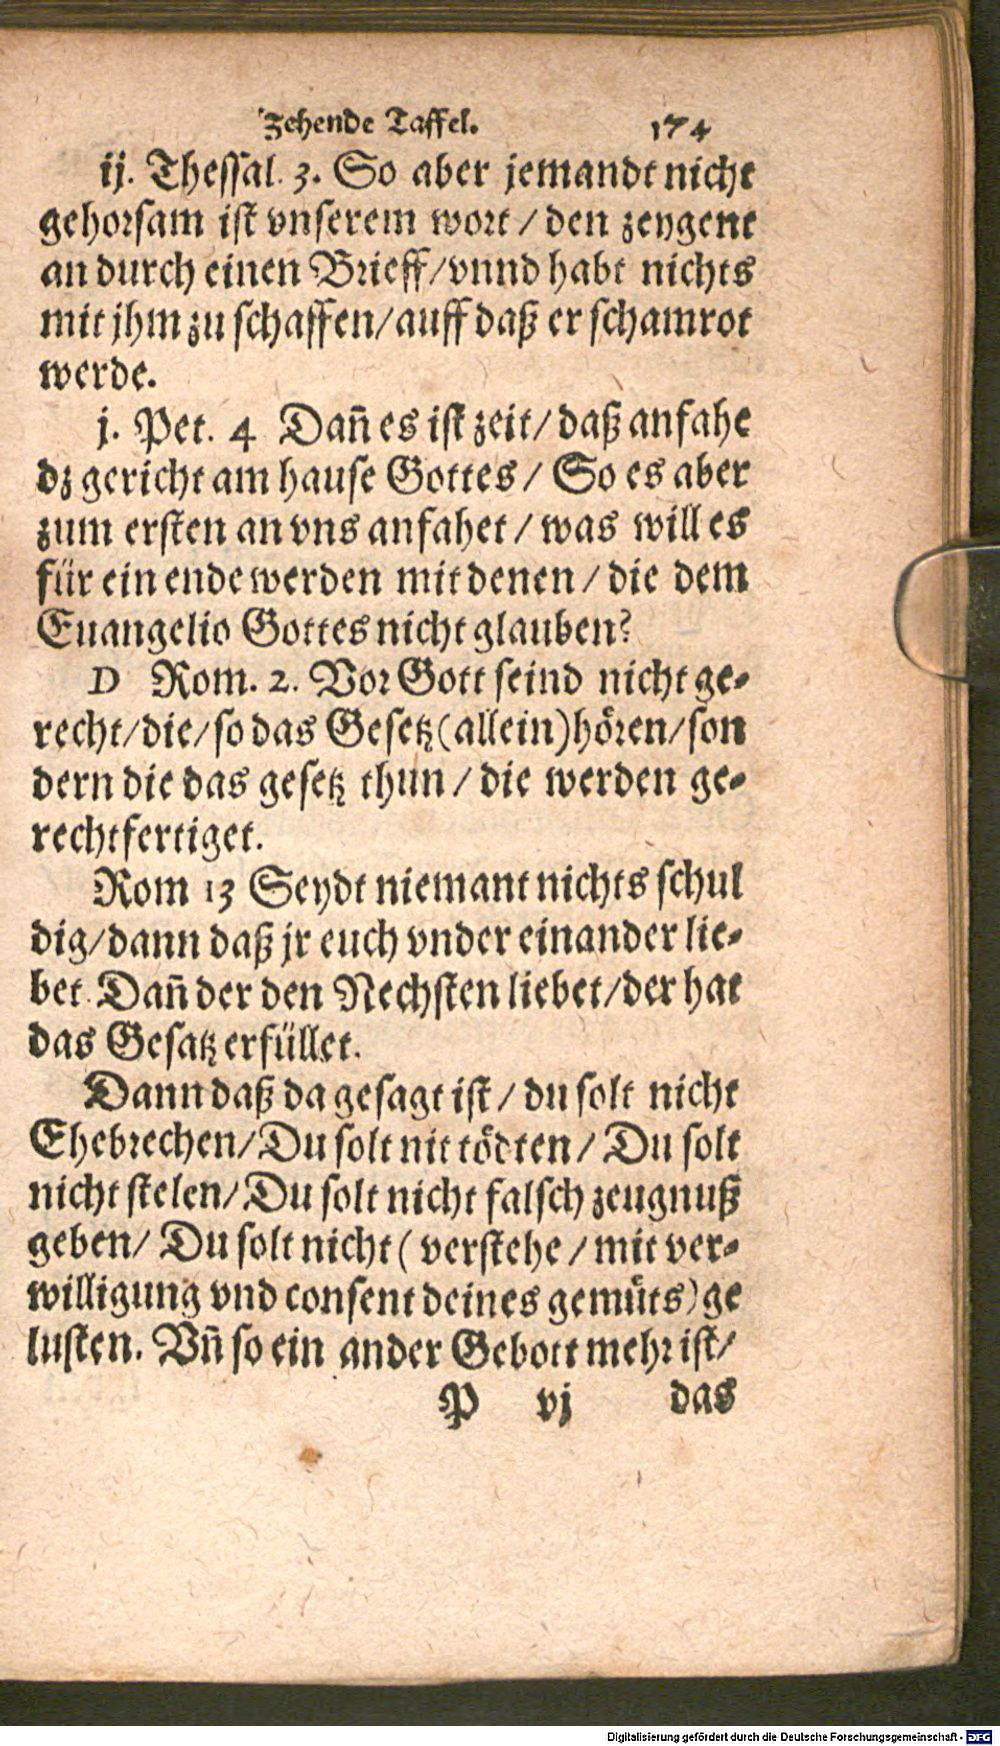 Zehende Taffel. 174
ij. Thessal. 3. So aber jemandt nicht
gehorsam ist vnserem wort / den zeygent
an durch einen Brieff / vnnd habt nichts
mit jhm zu schaffen / auff daß er schamrot
werde.
j. Pet. 4 Dañ es ist zeit / daß anfahe
dz gericht am hause Gottes / So es aber
zum ersten an vns anfahet / was will es
für ein ende werden mit denen / die dem
Euangelio Gottes nicht glauben?
D Rom. 2. Vor Gott seind nicht ge-
recht / die / so das Gesetz (allein) hören / son
dern die das gesetz thun / die werden ge-
rechtfertiget.
Rom 13 Seydt niemant nichts schul
dig / dann daß jr euch vnder einander lie-
bet. Dañ der den Nechsten liebet / der hat
das Gesatz erfüllet.
Dann daß da gesagt ist / du solt nicht
Ehebrechen / Du solt nit tödten / Du solt
nicht stelen / Du solt nicht falsch zeugnuß
geben / Du solt nicht ( verstehe / mit ver-
willigung vnd consent deines gemüts) ge
lusten. Vñ so ein ander Gebott mehr ist /
P vj das
Digitalisierung gefördert durch die Deutsche Forschungsgemeinschaft - DFG